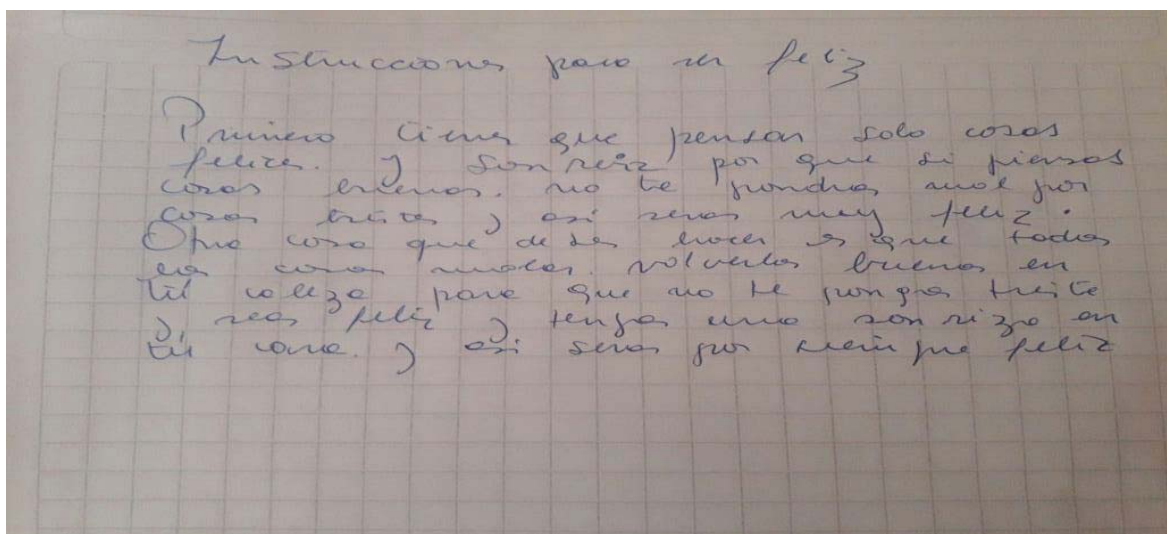 Instrucciones para ser feliz
Primero tienes que pensar solo cosas
felices. y sonreir por que si piensas
cosas buenas. no te pondras mal por
cosas tristes y asi seras muy feliz.
Otra cosa que debes hacer es que todas
las cosas malas. volverlas buenas en
tú cabeza para que no te pongas triste
y seas feliz y tengas una sonriza en
tú cara. y asi seras por siempre feliz